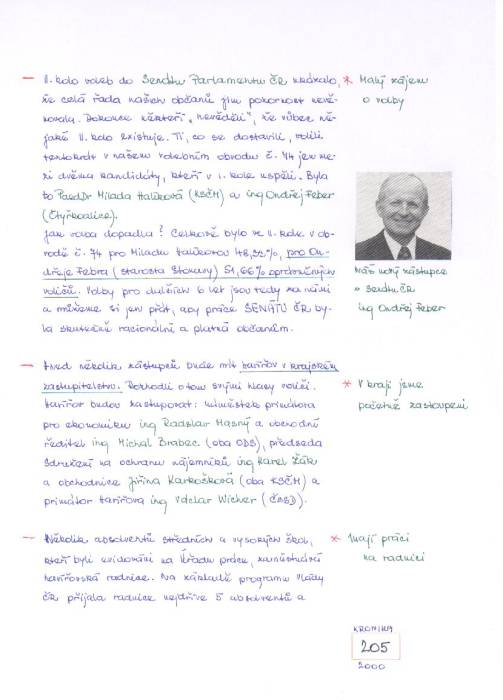 — II. kolo voleb do Senátu Parlamentu ČR ukázalo,
že celá řada našich občanů jim pozornost nevě-
novala. Dokonce někteří „nevěděli“, že vůbec ně-
jaké II. kolo existuje. Ti, co se dostavili, volili
tentokrát v našem volebním obvodu č. 74 jen me-
zi dvěma kandidáty, kteří v I. kole uspěli. Byla
to PaedDr Milada Halíková (KSČM) a ing Ondřej Feber
(Čtyřkoalice).
Jak volba dopadla? Celkově bylo ve II. kole v ob-
vodě č. 74 pro Miladu Halíkovou 48,32%, pro On-
dřeje Febra (starosta Stonavy) 51,66% oprávněných
voličů. Volby pro dalších 6 let jsou tedy za námi
a můžeme si jen přát, aby práce SENÁTU ČR by-
la skutečně racionální a platná občanům.
* Malý zájem
o volby
Náš nový zástupce
v Senátu ČR
ing Ondřej Feber
— Hned několik zástupců bude mít Havířov v krajském
zastupitelstvu. Rozhodli o tom svými hlasy voliči.
Havířov budou zastupovat: náměstek primátora
pro ekonomiku ing Radslav Masný a obchodní
ředitel ing Michal Brabec (oba ODS), předseda
Sdružení na ochranu nájemníků ing Karel Žák
a obchodnice Jiřina Karkošková (oba KSČM) a
primátor Havířova ing Václav Wicher (ČSSD).
* V kraji jsme
početně zastoupeni
— Několik absolventů středních a vysokých škol,
kteří byli evidováni na Úřadu práce, zaměstnává
havířovská radnice. Na základě programu Vlády
ČR přijala radnice nejdříve 5 absolventů a
* Mají práci
na radnici
KRONIKA
205
2000